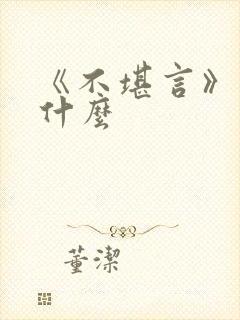 《不堪言》
什麼
董潔